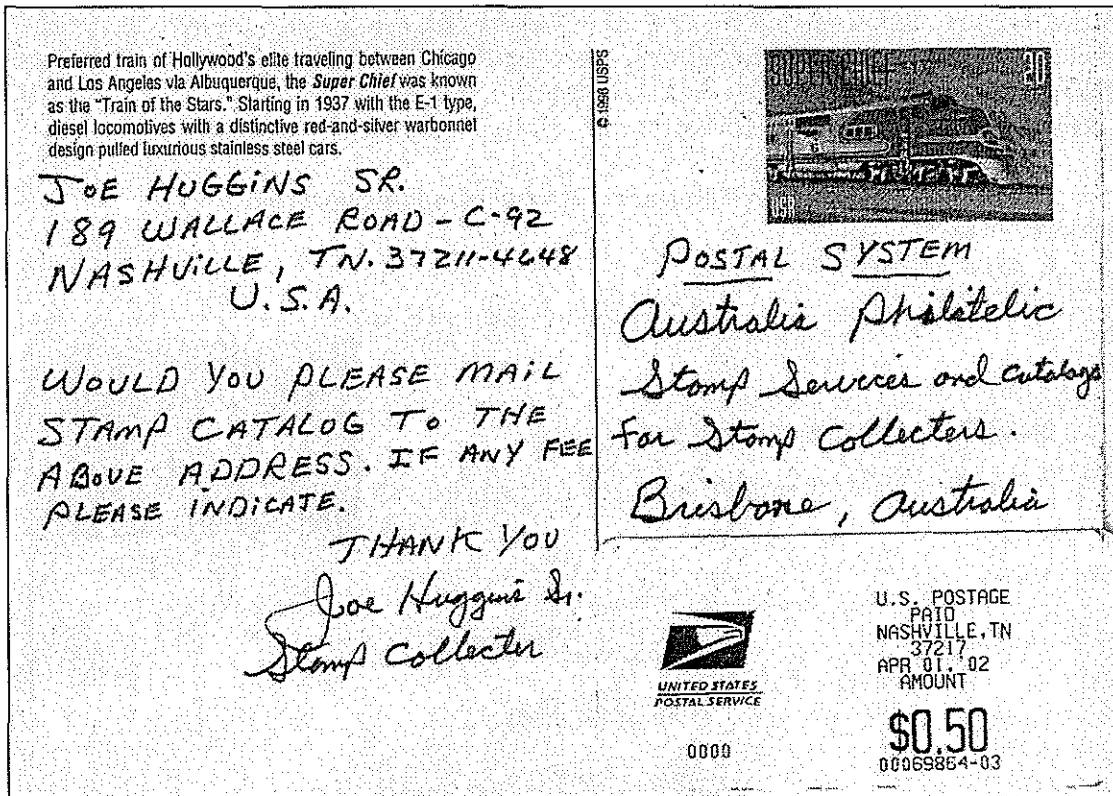 Preferred train of Hollywood's elite traveling between Chicago
and Los Angeles via Albuquerque, the Super Chief was known
as the "Train of the Stars." Starting in 1937 with the E-1 type,
diesel locomotives with a distinctive red-and-silver warbonnet
design pulled luxurious stainless steel cars.
JOE HUGGINS SR.
189 WALLACE ROAD - C-92
NASHVILLE, TN. 37211-4648
U.S.A.
WOULD YOU PLEASE MAIL
STAMP CATALOG TO THE
ABOVE ADDRESS. IF ANY FEE
PLEASE INDICATE.
THANK YOU
Joe Huggins Sr.
Stamp Collecter
© 1998 USPS
SUPER CHIEF
20
6
USA
POSTAL SYSTEM
Australia Philatelic
Stamp Services and catalogs
For Stamp Collecters.
Brisbane, Australia
UNITED STATES
POSTAL SERVICE
0000
U.S. POSTAGE
PAID
NASHVILLE,TN
37217
APR 01,'02
AMOUNT
$0.50
00069864-03